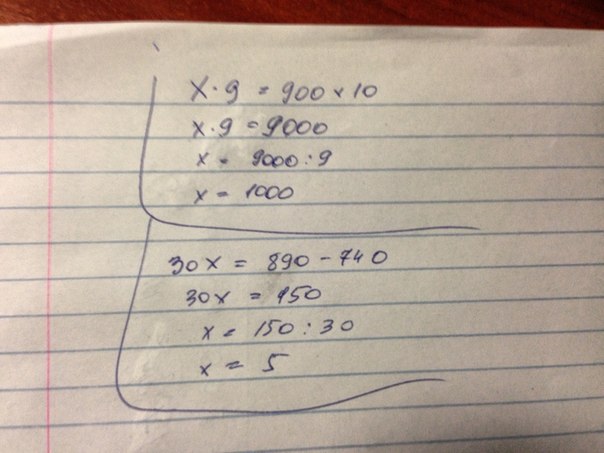 x · 9 = 900 × 10
x · 9 = 9000
x = 9000 : 9
x = 1000
30x = 890 - 740
30x = 150
x = 150 : 30
x = 5